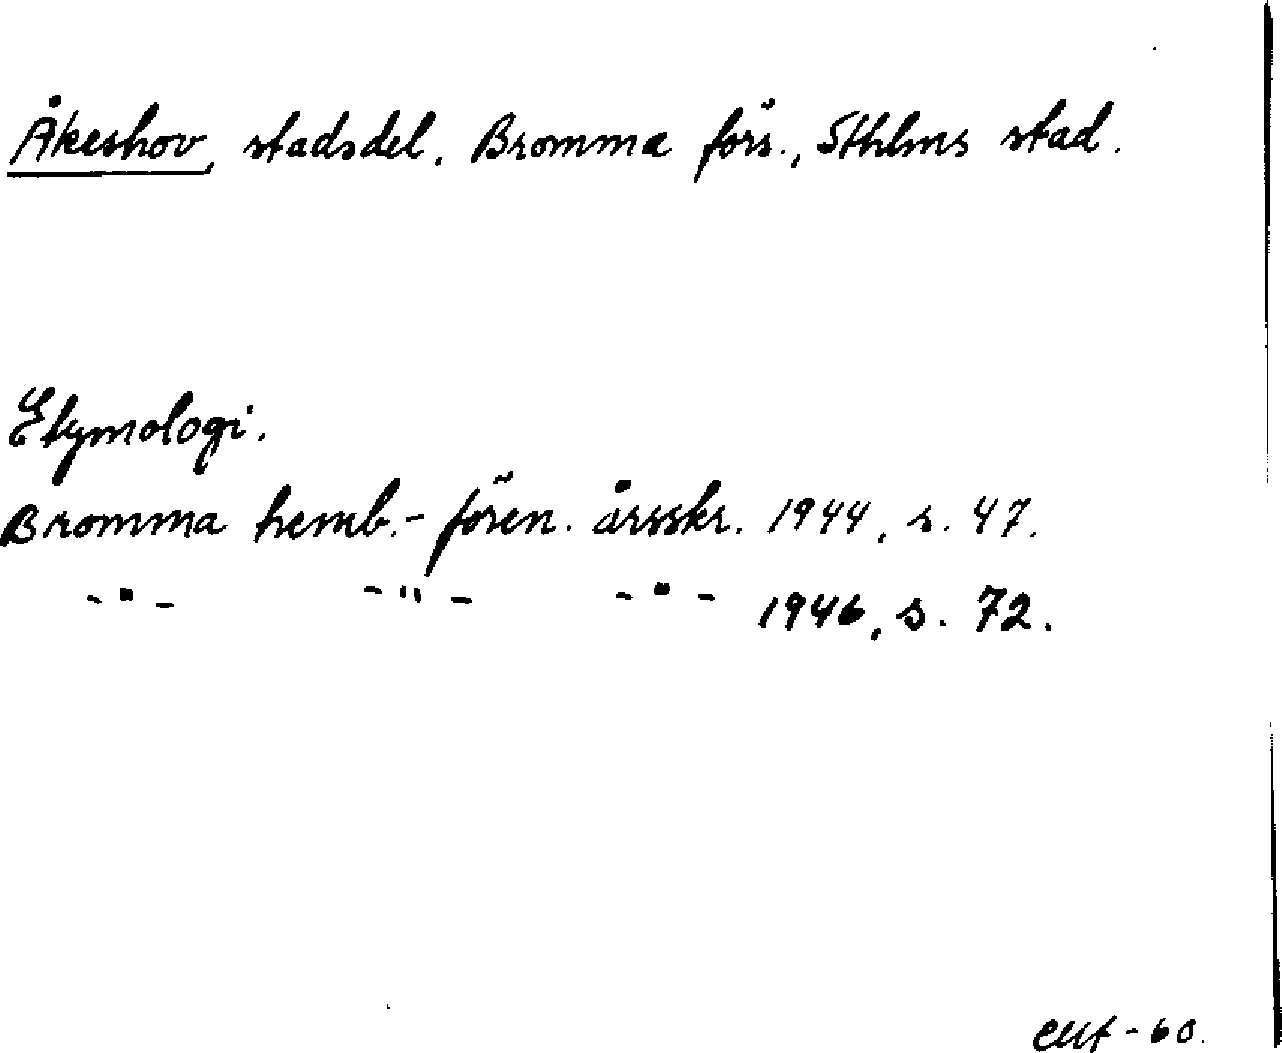 Åkeshov, stadsdel. Bromma förs., Sthlms stad.
Etymologi.
Bromma hemb.-fören. årsskr. 1944, s. 47.
-"- -"- -"- 1946, s. 72.
-60.